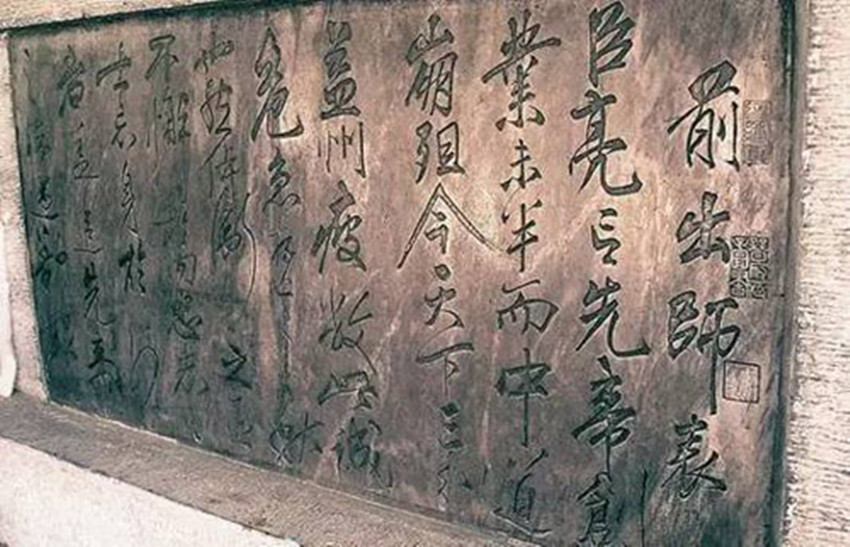 前出師表
臣亮言先帝創
業未半而中道
崩殂今天下三分
益州疲敝此誠
危急存亡之秋
也然侍衛之臣
不懈於內忠志
士忘身於外
者蓋追先帝
之殊遇欲報